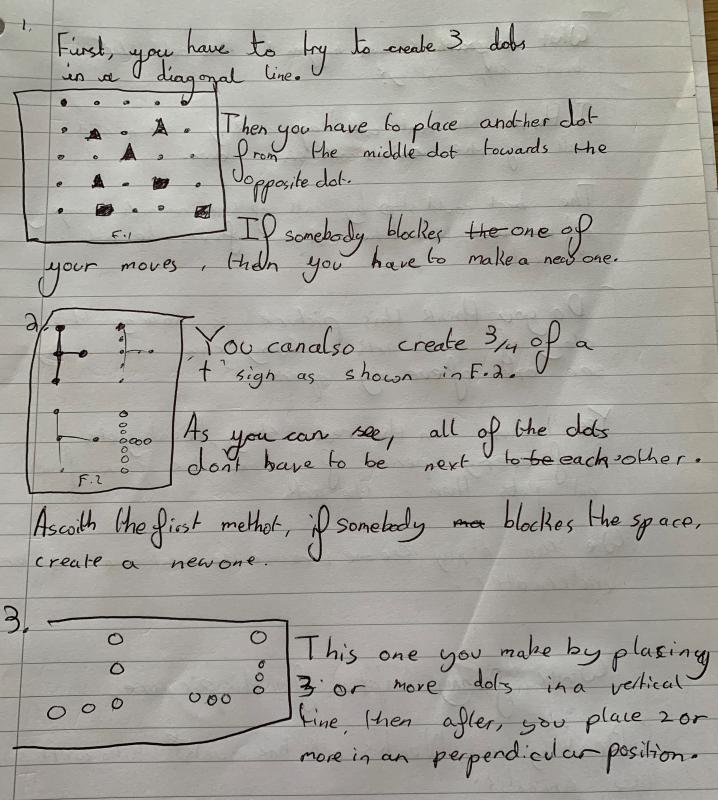 1.
First, you have to try to create 3 dots
in a diagonal line.
Then you have to place another dot
from the middle dot towards the
opposite dot.
F.1
If somebody blockes the one of
your moves, then you have to make a new one.
2.
You can also create 3/4 of a
't' sign as shown in F.2.
As you can see, all of the dots
don't have to be next to be each other.
F.2
As with the first methot, if somebody blockes the space,
create a new one.
3.
This one you make by plasing
3 or more dots in a vertical
line, then after, you place 2 or
more in an perpendicular position.